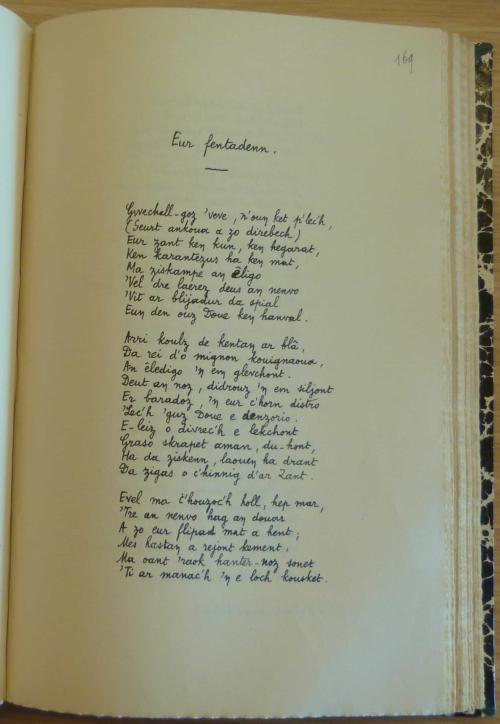 169
Eur fentadenn.
Gwechall-goz 'veve, n'oun ket p'lec'h,
(Seurt ankoua a zo direbech)
Eur zant ken kun, ken hegarat,
Ken karantezus ha ken mat,
Ma ziskampe an êligo
'Vel dre laerez deus an nenvo
'Vit ar blijadur da spial
Eun den ouz Doue ken hanval.
Arri koulz de kentan ar blâ,
Da rei d'ô mignon kouignaoua,
An êledigo 'n em glevchont.
Deut an noz, didrouz 'n em siljont
Er baradoz, 'n eur c'horn distro
'Lec'h 'guz Doue e denzorio.
E-leiz o divrec'h e lekchont
Graso skrapet aman, du-hont,
Ha da ziskenn, laouen ha drant
Da zigas o c'hinnig d'ar Zant.
Evel ma t'houzoc'h holl, hep mar,
'Tre an nenvo hag an douar
A zo eur flipad mat a hent;
Mes hastan a rejont kement.
Ma oant 'raok hanter-noz sonet
'Ti ar manac'h 'n e loch kousket.